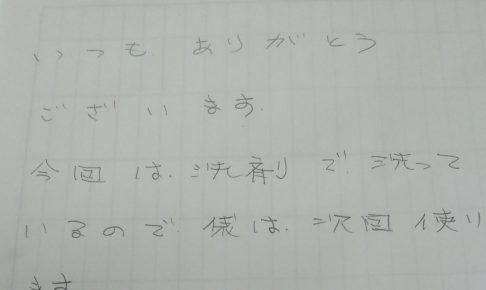 いつも ありがとう
ございます.
今回は.洗剤で.洗って
いるので.様は.次回使り
ます